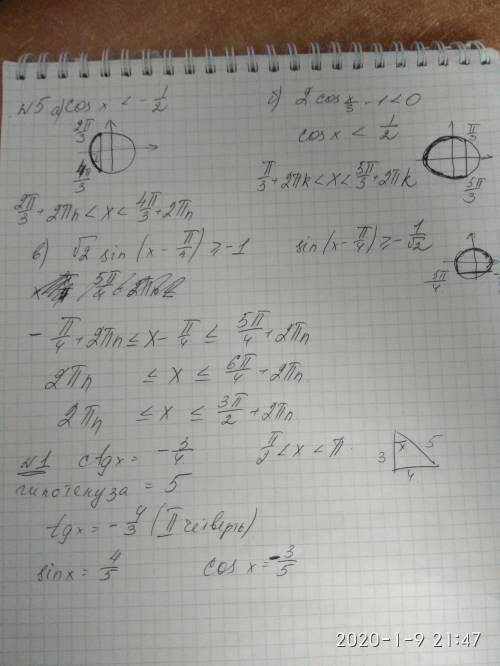 №5 a) cos x < -1/2
2π/3
4π/3
2π/3 + 2πn < x < 4π/3 + 2πn
б) 2 cos x/3 - 1 < 0
cos x < 1/2
π/3
5π/3
π/3 + 2πk < x < 5π/3 + 2πk
в) √2 sin (x - π/4) ≥ -1
sin (x - π/4) ≥ -1/√2
5π/4
-π/4 + 2πn ≤ x - π/4 ≤ 5π/4 + 2πn
2πn ≤ x ≤ 6π/4 + 2πn
2πn ≤ x ≤ 3π/2 + 2πn
№1 ctg x = -3/4 π/2 < x < π
3 x 5
4
гипотенуза = 5
tg x = -4/3 (II четверть)
sin x = 4/5 cos x = -3/5
2020-1-9 21:47